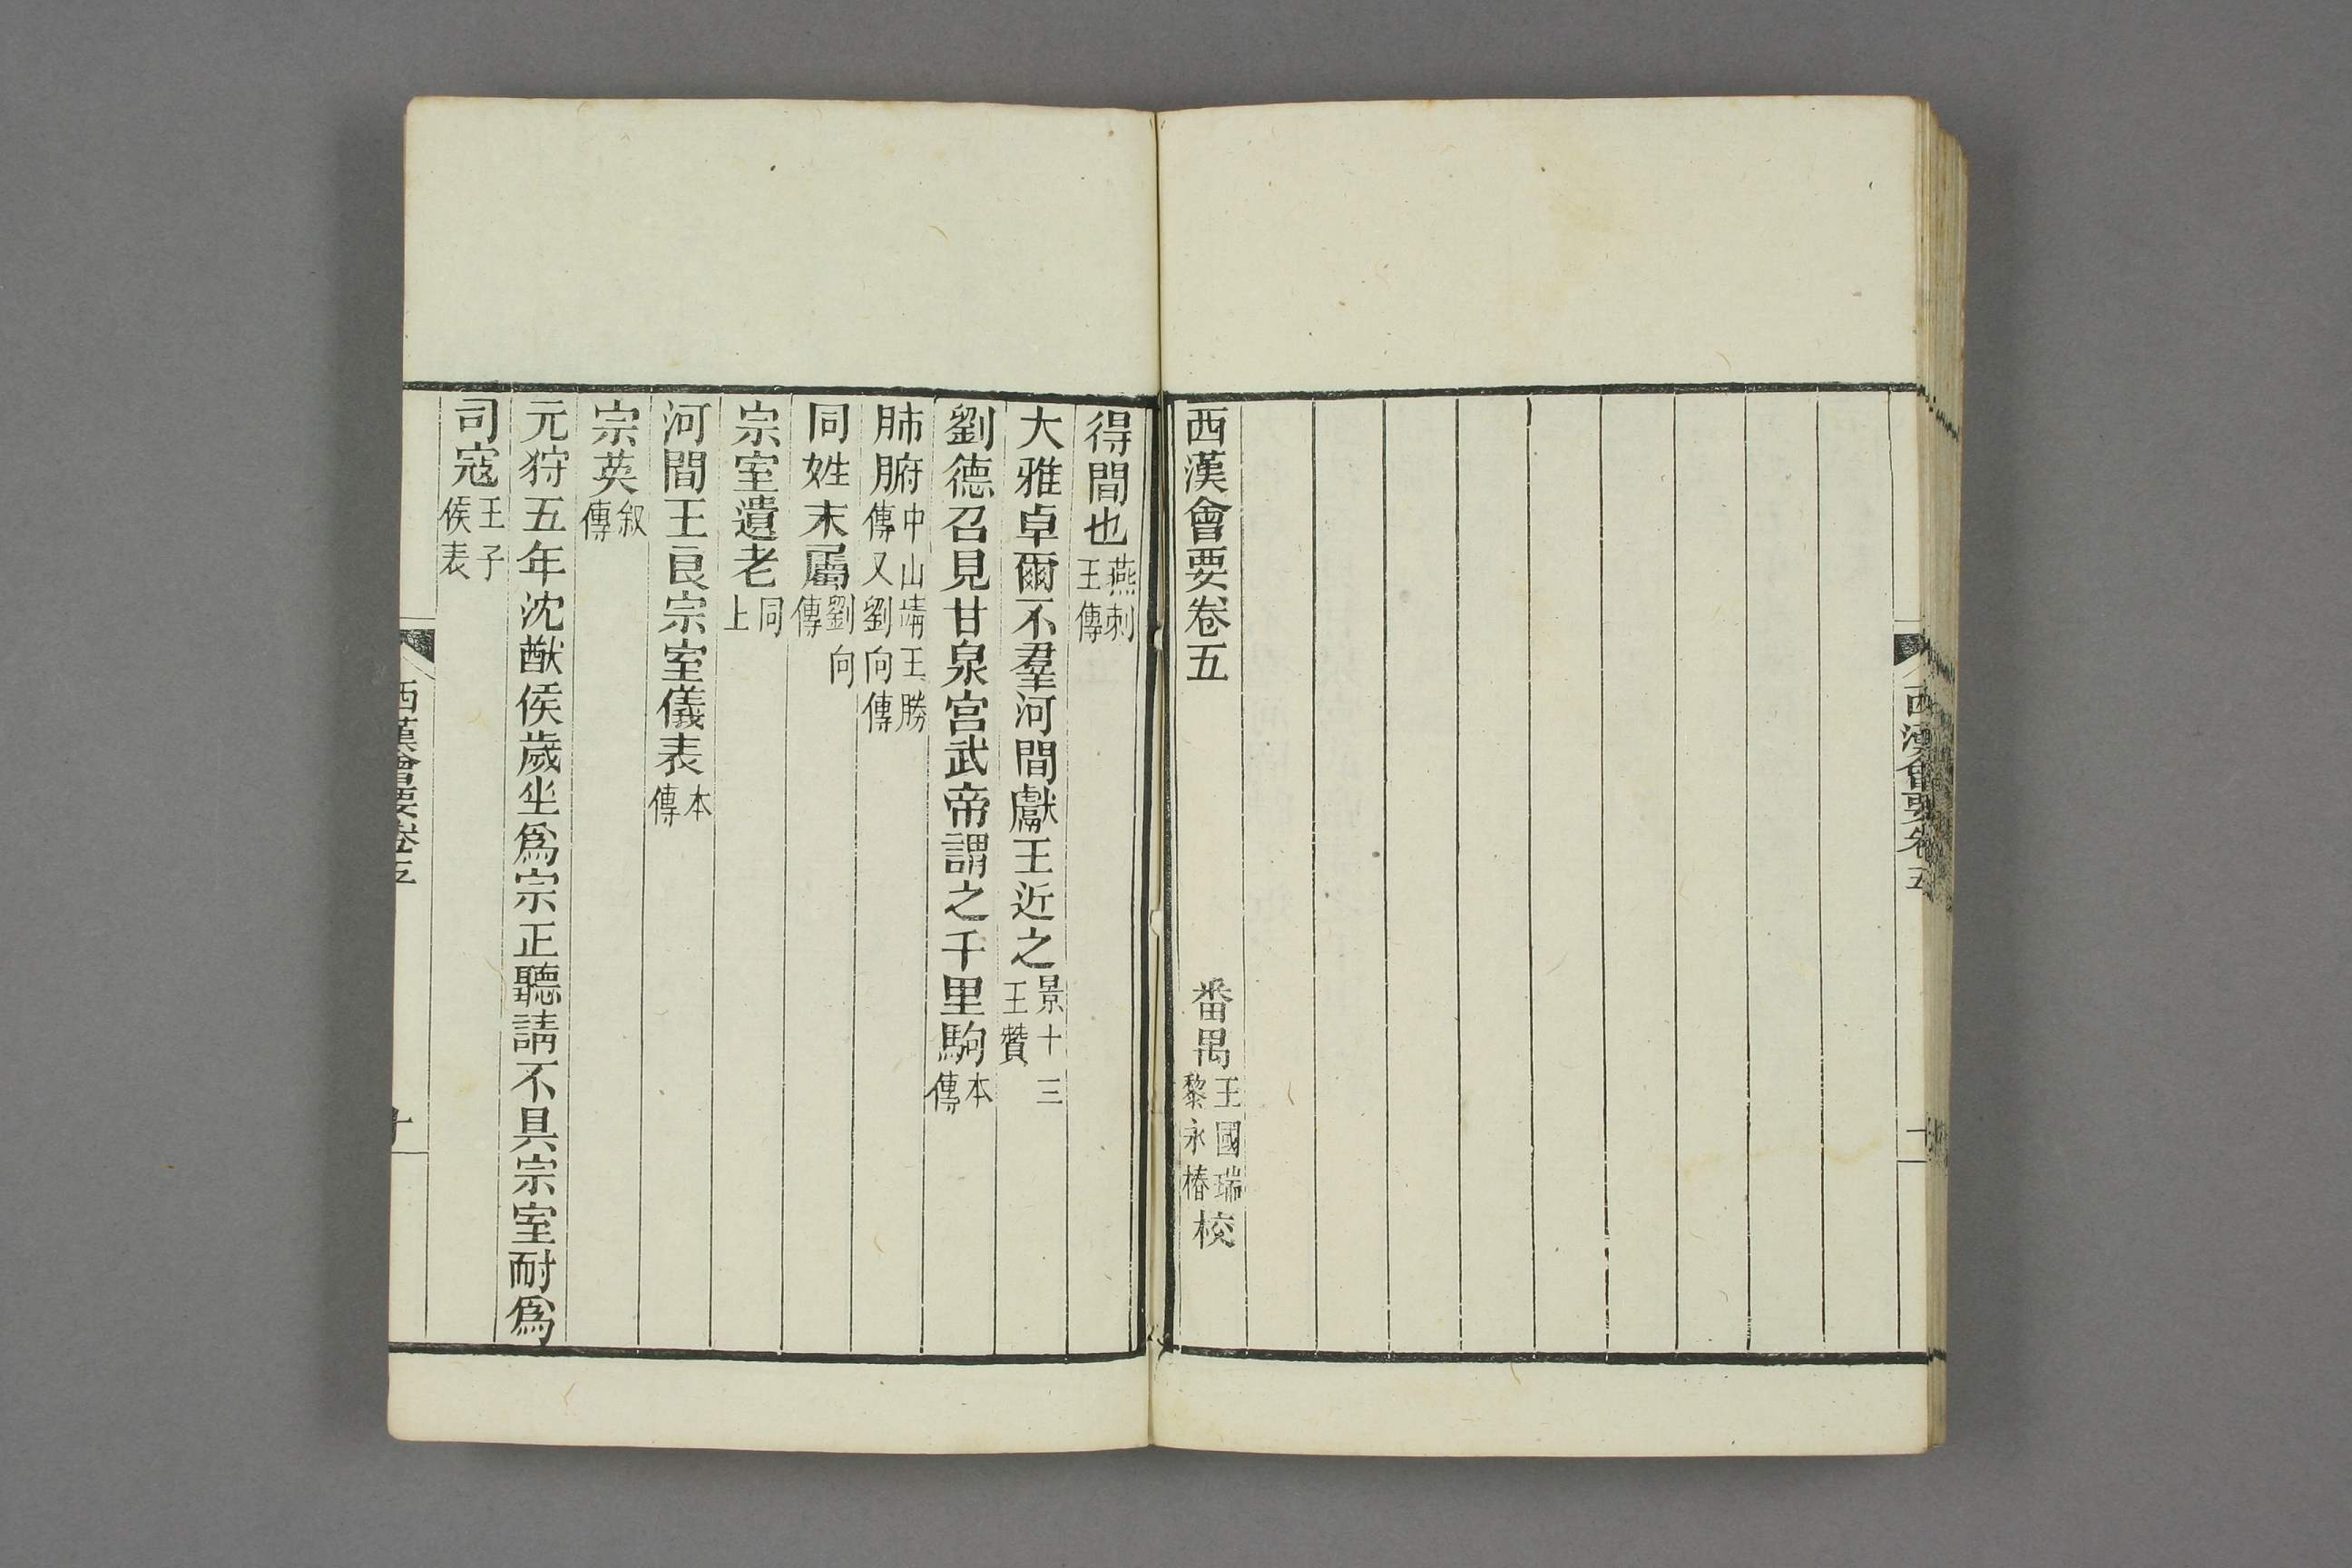 西漢會要卷五
西漢會要卷五　番禺王國瑞黎永椿校
得間也燕刺王傳
大雅卓爾不羣河間獻王近之景十三王贊
劉德召見甘泉宮武帝謂之千里駒本傳
肺腑中山靖王勝傳又劉向傳
同姓末屬劉向傳
宗室遺老同上
河間王良宗室儀表本傳
宗英叙傳
元狩五年沈猷侯歲坐爲宗正聽請不具宗室耐爲
司寇王子侯表
西漢會要卷五
十